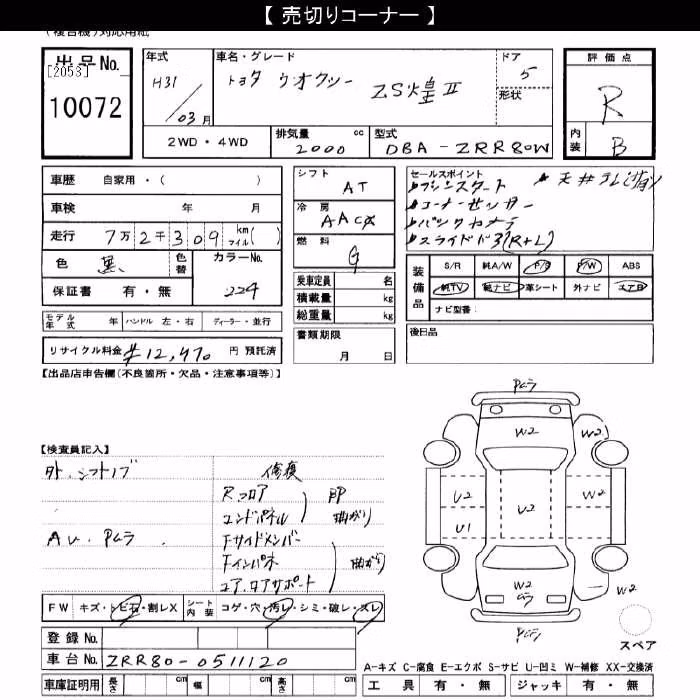 【 売切りコーナー 】
出品No.
[2053]
10072
年式
H31
／03月
車名・グレード
トヨタ ヴォクシー ZS煌Ⅱ
ドア
5
形状
評価点
R
内装
B
2WD・4WD
排気量 cc
2000
型式
DBA-ZRR80W
車歴 自家用・( )
車検 年 月
走行 7万2千309 km マイル( )
色 黒
色替
カラーNo.
224
保証書 有・無
シフト
AT
冷房
AAC
燃料
G
乗車定員 名
積載量 kg
総重量 kg
セールスポイント
プッシュスタート
天井TV(有)
コーナーセンサー
バックカメラ
スライドドア(R+L)
装備品
S/R 純A/W P/S P/W ABS
純TV 純ナビ 革シート 外ナビ エアB
ナビ型番：
モデル年式 年 ハンドル 左・右 ディーラー・並行
リサイクル料金 ¥12,470 円 預託済
書類期限
月 日
後日品
【出品店申告欄(不良箇所・欠品・注意事項等)】
【検査員記入】
外.シフトノブ
AW. PCラ
修復
Rフロア
エンドパネル
曲がり
Fサイドメンバー
Fインパネ
コア.ロアサポート
曲がり
FW キズ・トビ石・割レX
シート内装 コゲ・穴・汚レ・シミ・破レ・スレ
登録No.
車台No. ZRR80-0511120
車庫証明用 長さ cm 幅 cm 高さ cm
PCラ
W2
W2
U2
U1
U2
W2
W2
W2
PCラ
スペア
A-キズ C-腐食 E-エクボ S-サビ U-凹ミ W-補修 XX-交換済
工具 有・無 ジャッキ 有・無